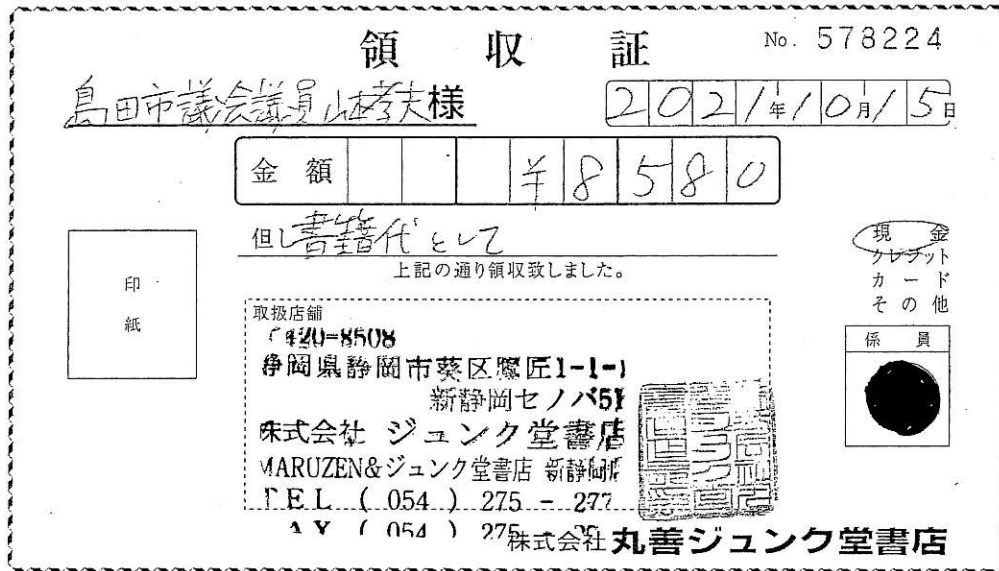 領収証
No. 578224
島田市議会議員 山本孝夫様
2021年10月15日
金額 ¥8580
但し書籍代として
上記の通り領収致しました。
現金
クレジット
カード
その他
印
紙
係員
取扱店舗
〒420-8508
静岡県静岡市葵区鷹匠1-1-1
新静岡セノバ5F
株式会社 ジュンク堂書店
MARUZEN&ジュンク堂書店 新静岡店
TEL (054) 275-277
(054) 275
株式会社丸善ジュンク堂書店